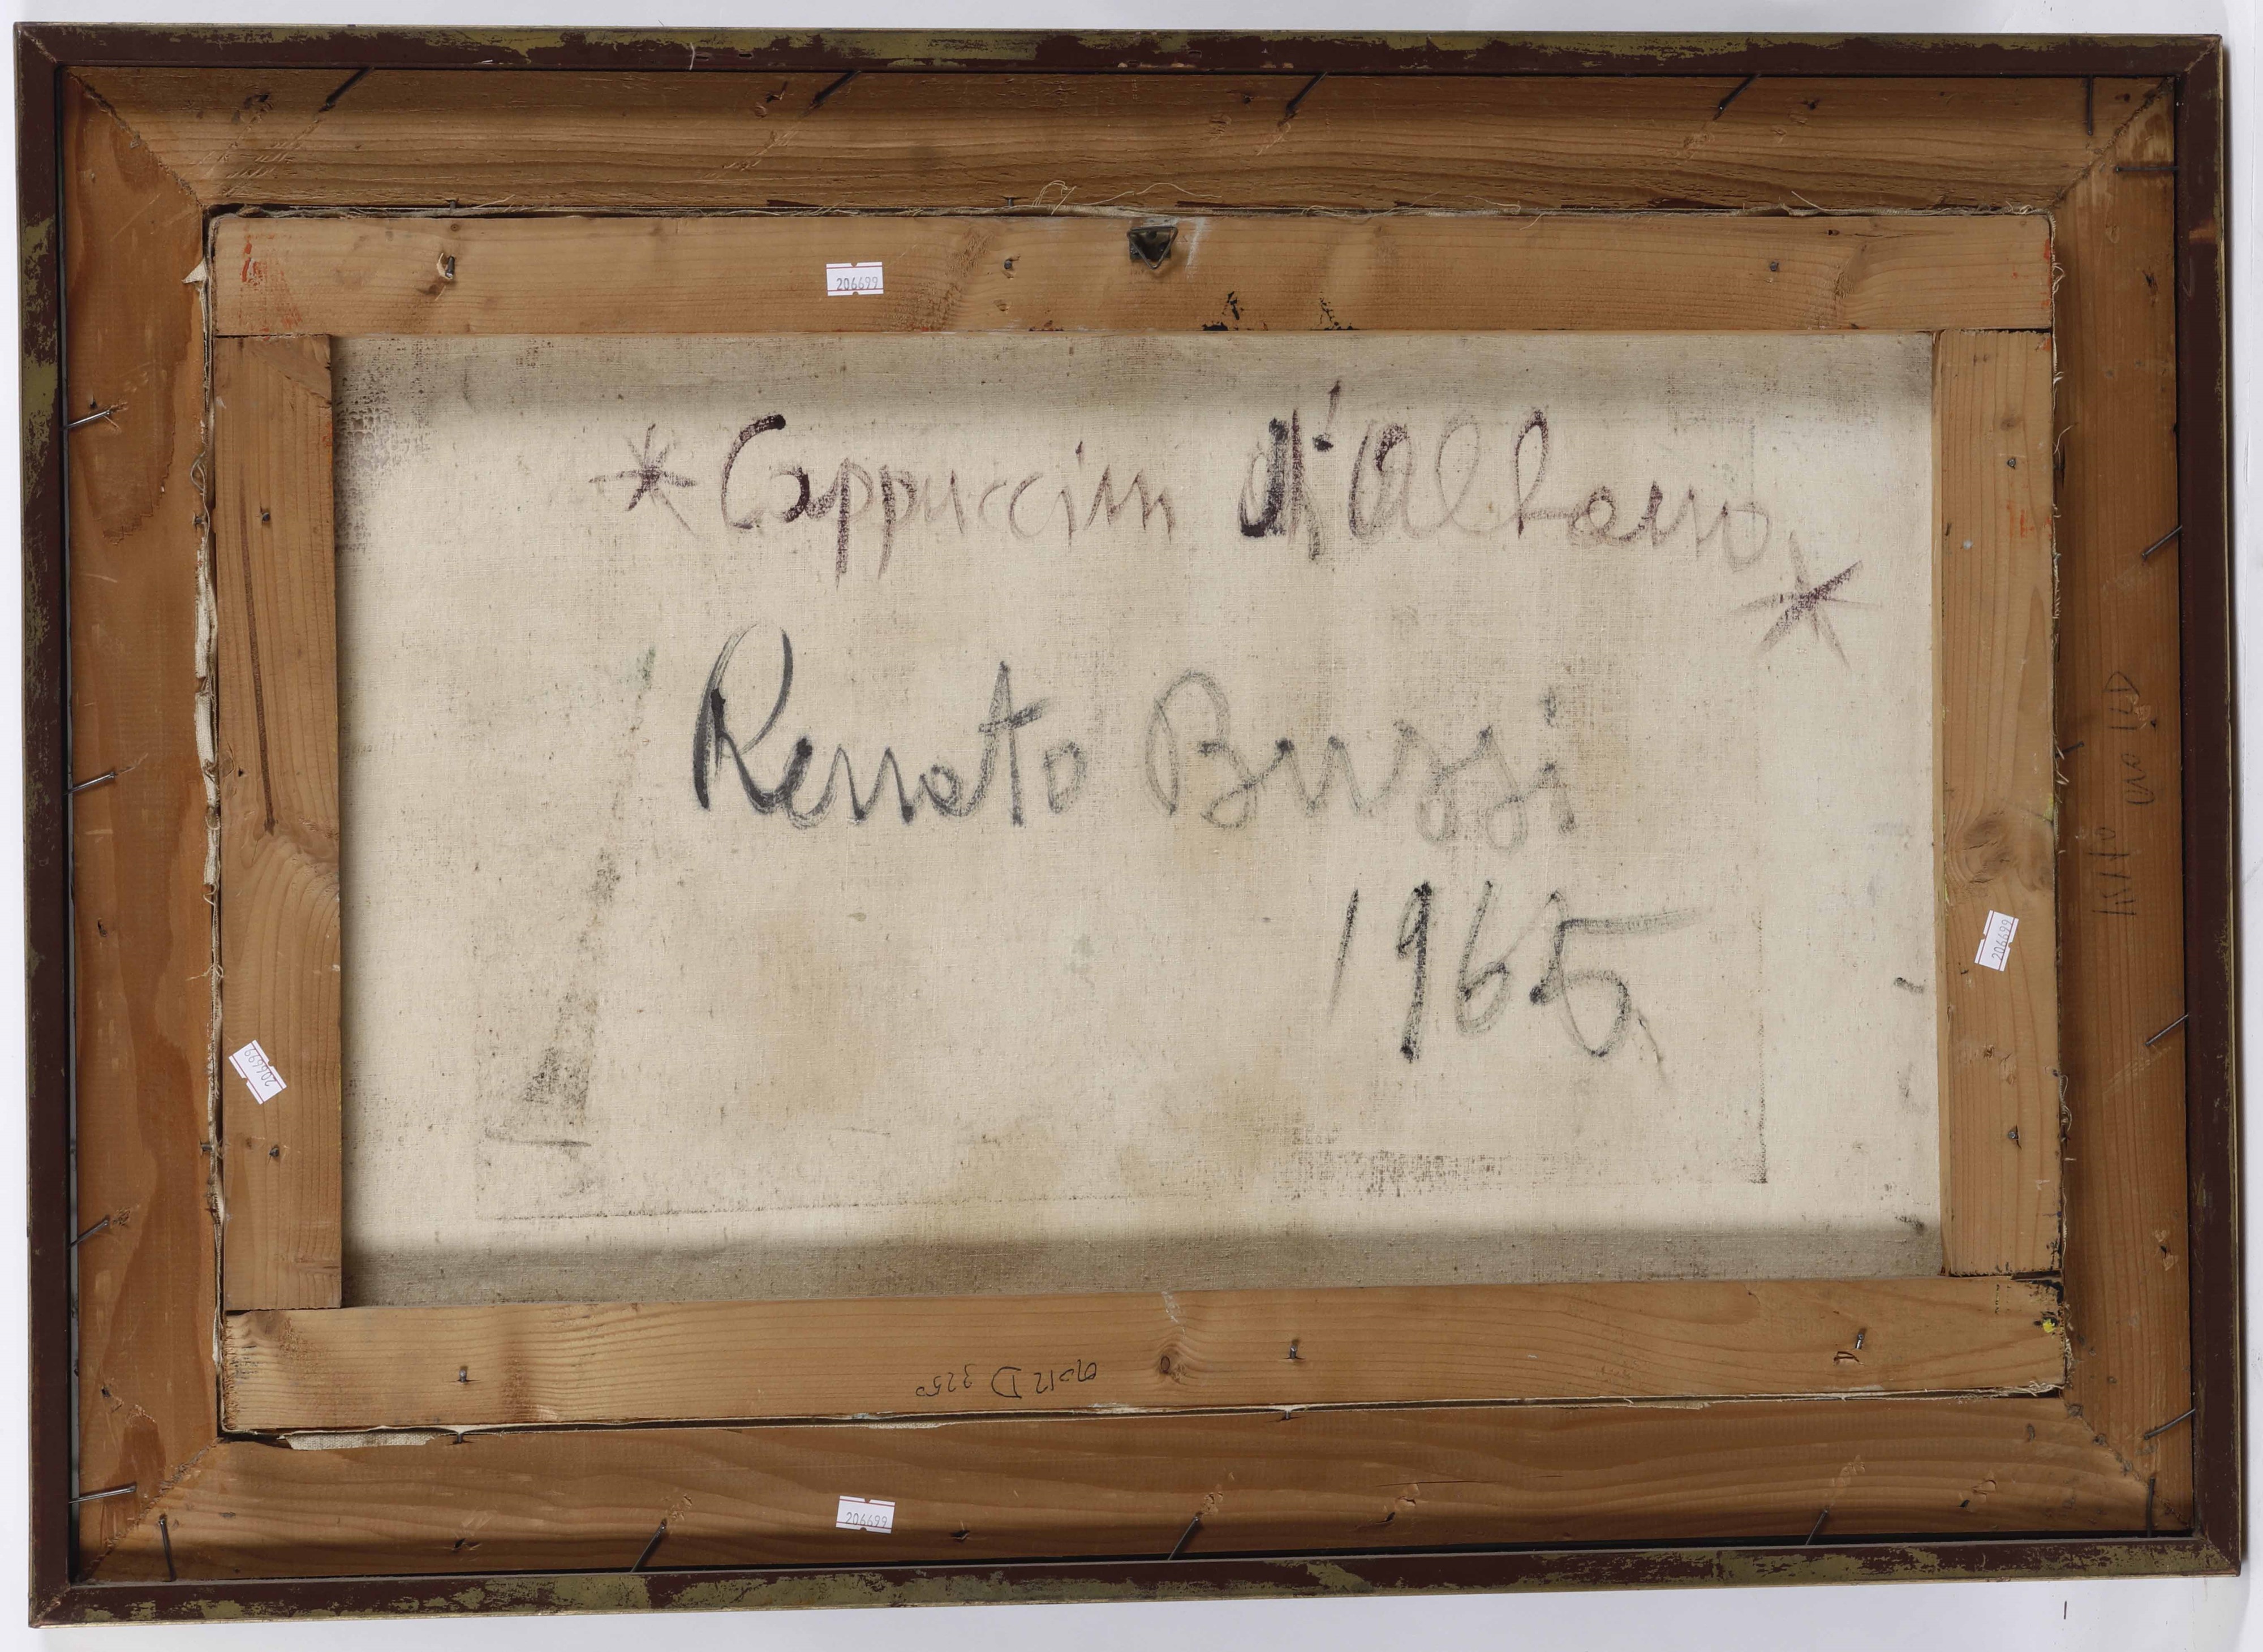 206699
* Cappuccini d'Albano *
Renato Buzzi
1965
206699
206699
206699